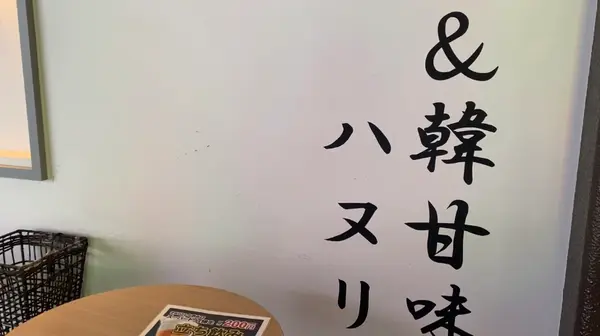 &韓甘味
ハヌリ
200円